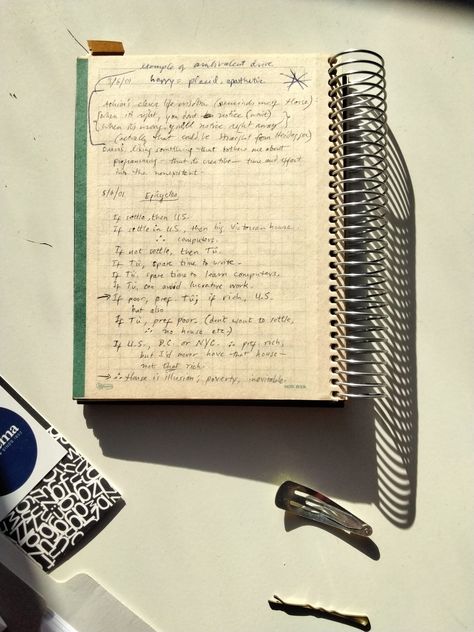 example of ambivalent drive
5/6/01 happy = placid, apathetic
clever life
when it's right, you don't notice
when it's wrong you'd notice right away
(actually that could be straight from Heidegger)
living something that bothers me about
programming — that its creative — time and effort
into the nonexistent.
5/6/01 Epicycles
If settle, then U.S.
If settle in U.S., then big Victorian house.
∴ computers.
If not settle, then Tü.
If Tü, spare time to write.
If Tü, spare time to learn computers.
If Tü, can avoid lucrative work.
→ If poor, pref Tü; if rich, U.S.
but also
If Tü, pref poor (don't want to settle,
∴ no house etc.)
If U.S., D.C. or NYC. ∴ pref rich,
but I'd never have that house —
not that rich.
→ ∴ House is illusion; poverty, inevitable.
NOTE BOOK
ma